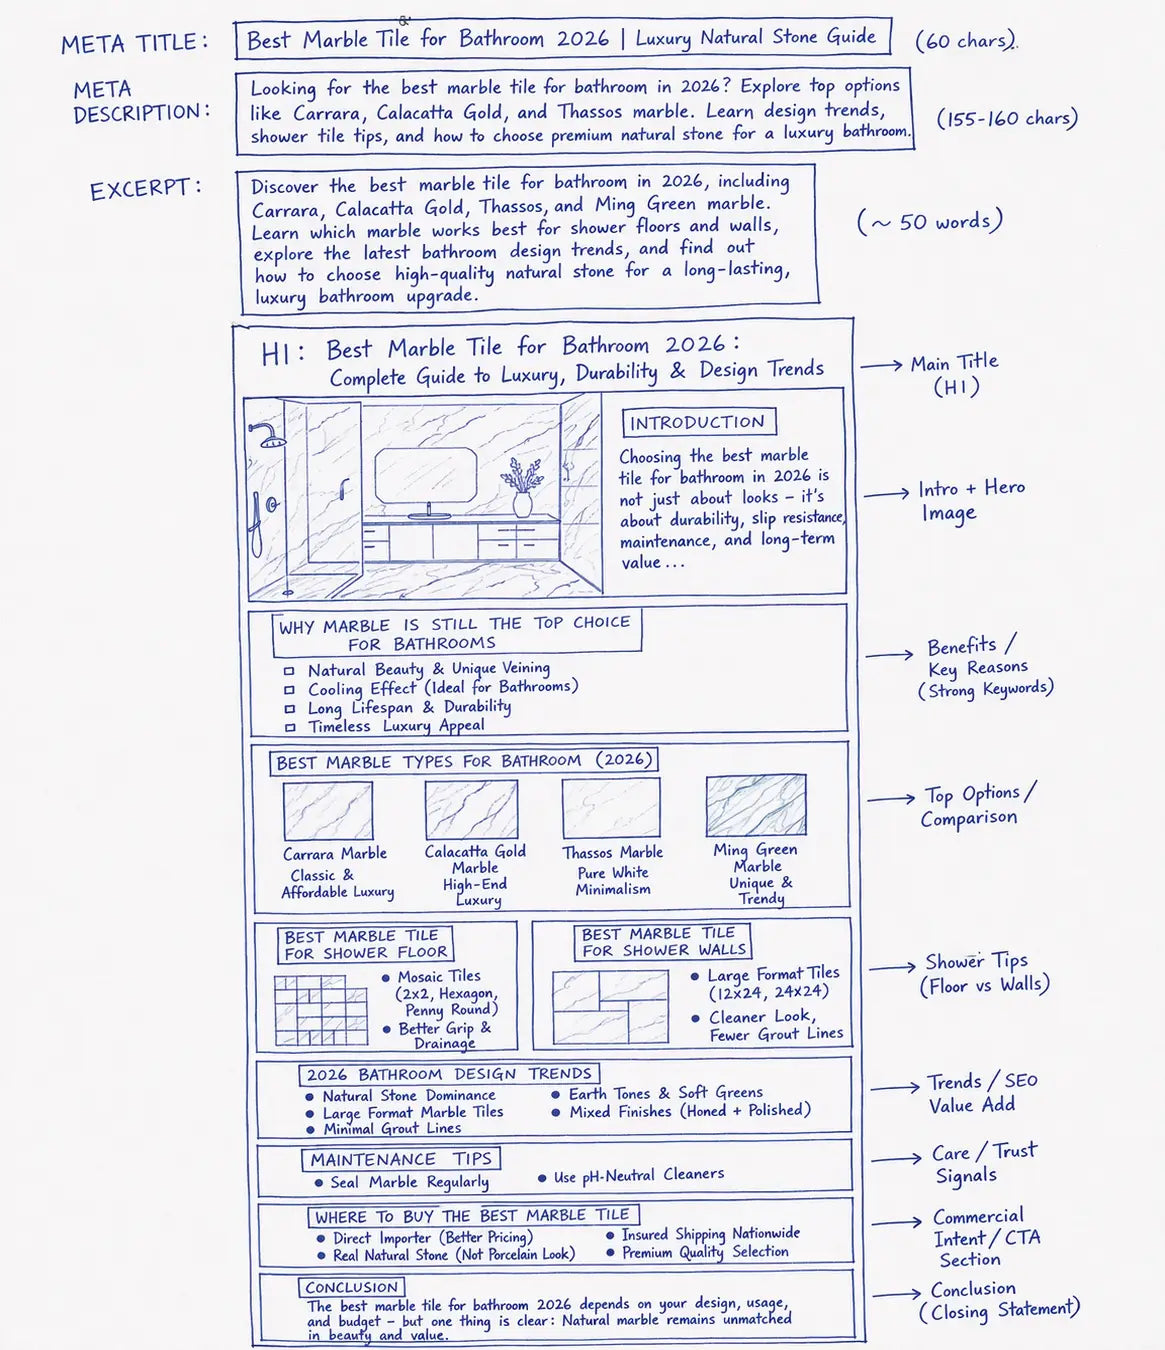 META TITLE:
Best Marble Tile for Bathroom 2026 | Luxury Natural Stone Guide
(60 chars).
META
DESCRIPTION:
Looking for the best marble tile for bathroom in 2026? Explore top options
like Carrara, Calacatta Gold, and Thassos marble. Learn design trends,
shower tile tips, and how to choose premium natural stone for a luxury bathroom.
(155-160 chars)
EXCERPT:
Discover the best marble tile for bathroom in 2026, including
Carrara, Calacatta Gold, Thassos, and Ming Green marble.
Learn which marble works best for shower floors and walls,
explore the latest bathroom design trends, and find out
how to choose high-quality natural stone for a long-lasting,
luxury bathroom upgrade.
(~ 50 words)
H1: Best Marble Tile for Bathroom 2026:
Complete Guide to Luxury, Durability & Design Trends
→ Main Title
(H1)
INTRODUCTION
Choosing the best marble
tile for bathroom in 2026 is
not just about looks – it's
about durability, slip resistance,
maintenance, and long-term
value ...
→ Intro + Hero
Image
WHY MARBLE IS STILL THE TOP CHOICE
FOR BATHROOMS
□ Natural Beauty & Unique Veining
□ Cooling Effect (Ideal for Bathrooms)
□ Long Lifespan & Durability
□ Timeless Luxury Appeal
→ Benefits /
Key Reasons
(Strong Keywords)
BEST MARBLE TYPES FOR BATHROOM (2026)
Carrara Marble
Classic &
Affordable Luxury
Calacatta Gold
Marble
High-End
Luxury
Thassos Marble
Pure White
Minimalism
Ming Green
Marble
Unique &
Trendy
→ Top Options /
Comparison
BEST MARBLE TILE
FOR SHOWER FLOOR
• Mosaic Tiles
(2x2, Hexagon,
Penny Round)
• Better Grip &
Drainage
BEST MARBLE TILE
FOR SHOWER WALLS
• Large Format Tiles
(12x24, 24x24)
• Cleaner Look,
Fewer Grout Lines
→ Shower Tips
(Floor vs Walls)
2026 BATHROOM DESIGN TRENDS
• Natural Stone Dominance
• Large Format Marble Tiles
• Minimal Grout Lines
• Earth Tones & Soft Greens
• Mixed Finishes (Honed + Polished)
→ Trends / SEO
Value Add
MAINTENANCE TIPS
• Seal Marble Regularly
• Use pH-Neutral Cleaners
→ Care / Trust
Signals
WHERE TO BUY THE BEST MARBLE TILE
• Direct Importer (Better Pricing)
• Real Natural Stone (Not Porcelain Look)
• Insured Shipping Nationwide
• Premium Quality Selection
→ Commercial
Intent / CTA
Section
CONCLUSION
The best marble tile for bathroom 2026 depends on your design, usage,
and budget – but one thing is clear: Natural marble remains unmatched
in beauty and value.
→ Conclusion
(Closing Statement)